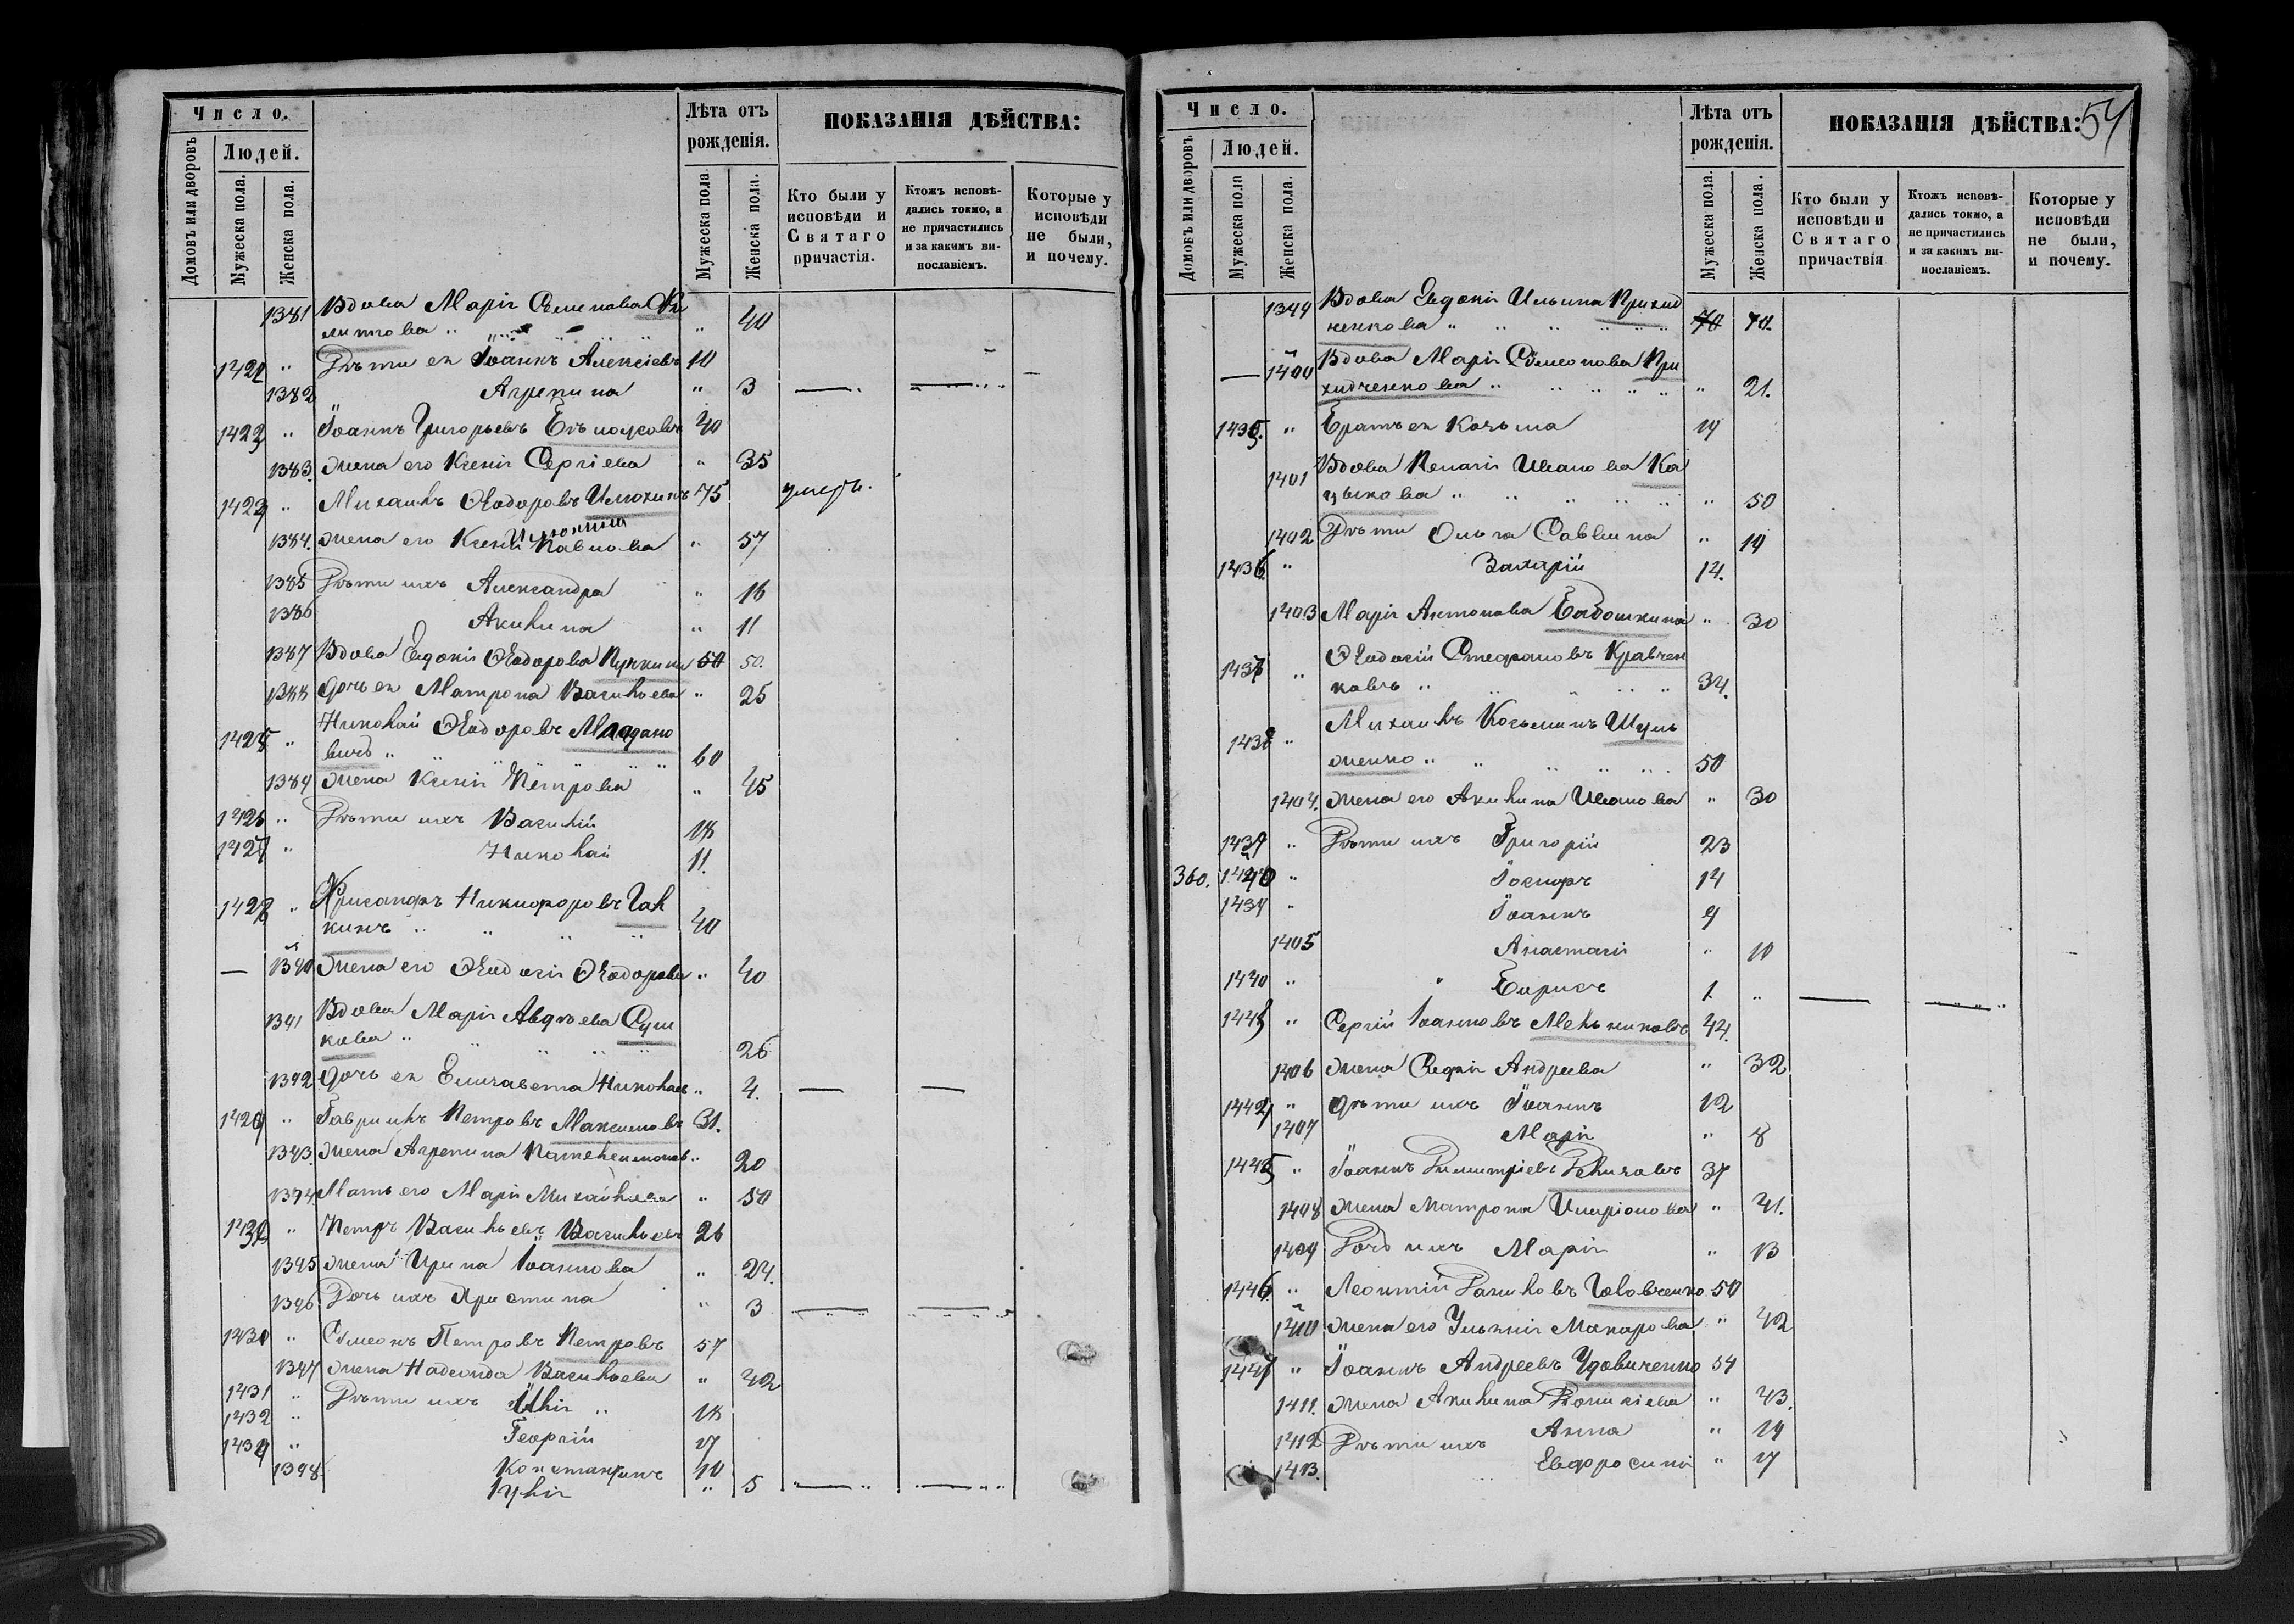 Число.
Домовъ или дворовъ
Людей.
Мужеска пола.
Женска пола.
Лѣта отъ рожденія.
Мужеска пола
Женска пола.
ПОКАЗАНІЯ ДѢЙСТВА:
Кто были у
исповѣди и
Святаго
причастія.
Ктожъ исповѣ-
дались токмо, а
не причастились
и за какимъ ви-
нословіемъ.
Которые у
исповѣди
не были,
и почему.
1381 Вдова Марія Семенова
" 40
Дѣти ея Іоаннъ Алексіевъ 10
1382 Агрепина " 3
Іоаннъ Григорьевъ 40
1383. Жена его Ксенія Сергіева " 35
Михаилъ Ѳеодоровъ Илюхинъ 75 умеръ.
1384. Жена его Ксенія Павлова " 57
1385 Дѣти ихъ Александра " 16
1386 Акилина " 11
1387 Вдова Евдокія Ѳеодорова 50 50.
1388 Дочь ея Матрона Васильева " 25
Николай Ѳеодоровъ
вичъ " 60
1389 Жена Ксенія Петрова " 45
Дѣти ихъ Василій 18
Николай 11.
Хрисанфъ Никифоровъ Гал
кинъ 40
1390 Жена его Ѳеодосія Ѳеодорова " 40
1391 Вдова Марія Авдѣева Суш
кова " 26
1392 Дочь ея Елисавета Николаев " 4.
1429 " Гавріилъ Петровъ Максимовъ 31.
1393. Жена Агрепина " 20
1394 Мать его Марія Михайлова " 50
Петръ Васильевъ Васильевъ 26
1395 Жена Ирина Іоаннова " 24.
1396 Дочь ихъ Христина " 3
1430 " Сѵмеонъ Петровъ Петровъ 57
1397 Жена Надежда Васильева " 42
1431 " Дѣти ихъ Илія 18
1432 "
Георгій 17
1398 Константинъ 10
Іулія " 5
Число.
Домовъ или дворовъ
Людей.
Мужеска пола
Женска пола.
Лѣта отъ рожденія.
Мужеска пола.
Женска пола.
ПОКАЗАНІЯ ДѢЙСТВА: 54
Кто были у
исповѣди и
Святаго
причаствія
Ктожъ исповѣ-
дались токмо, а
не причастились
и за какимъ ви-
нославіемъ.
Которые у
исповѣди
не были,
и почему.
1399 Вдова Евдокія Ильина Приход
ченкова " 70 70.
1400 Вдова Марія Сѵмеонова При
ходченкова " 21.
1435. " Братъ ея Козьма 19
1401 Вдова Пелагія Иванова Ка
зыкова " 50
1402 Дѣти Ольга Саввина " 19
1436. " Захарій 14.
1403 Марія Антонова " 30
1437 " Ѳеодосій Стефановъ Кравчен
ковъ " 34.
1438 " Михаилъ Козьминъ Шуль
женко " 50
1404. Жена его Акилина Иванова " 30
1439 " Дѣти ихъ Григорій 23
360. 1440 " Іосифъ 14
1439 " Іоаннъ 9
1405 Анастасія " 10
1440 " Борисъ 1. "
Сергій Іоанновъ Мельниковъ 44.
1406 Жена Софія Андреева " 32
Дѣти ихъ Іоаннъ 12
1407 Марія " 8
1445 " Іоаннъ Димитріевъ Денисовъ 37
1408 Жена Матрона Иларіонова " 41.
1409 Дочь ихъ Марія " 13
1446. " Леонтій Даниловъ Головченко 50
1410 Жена его Ульянія Макарова " 42
1447 " Іоаннъ Андреевъ Удовиченко 54
1411. Жена Акилина " 43.
1412 Дѣти ихъ Анна " 19
1413. Евфросинія " 17